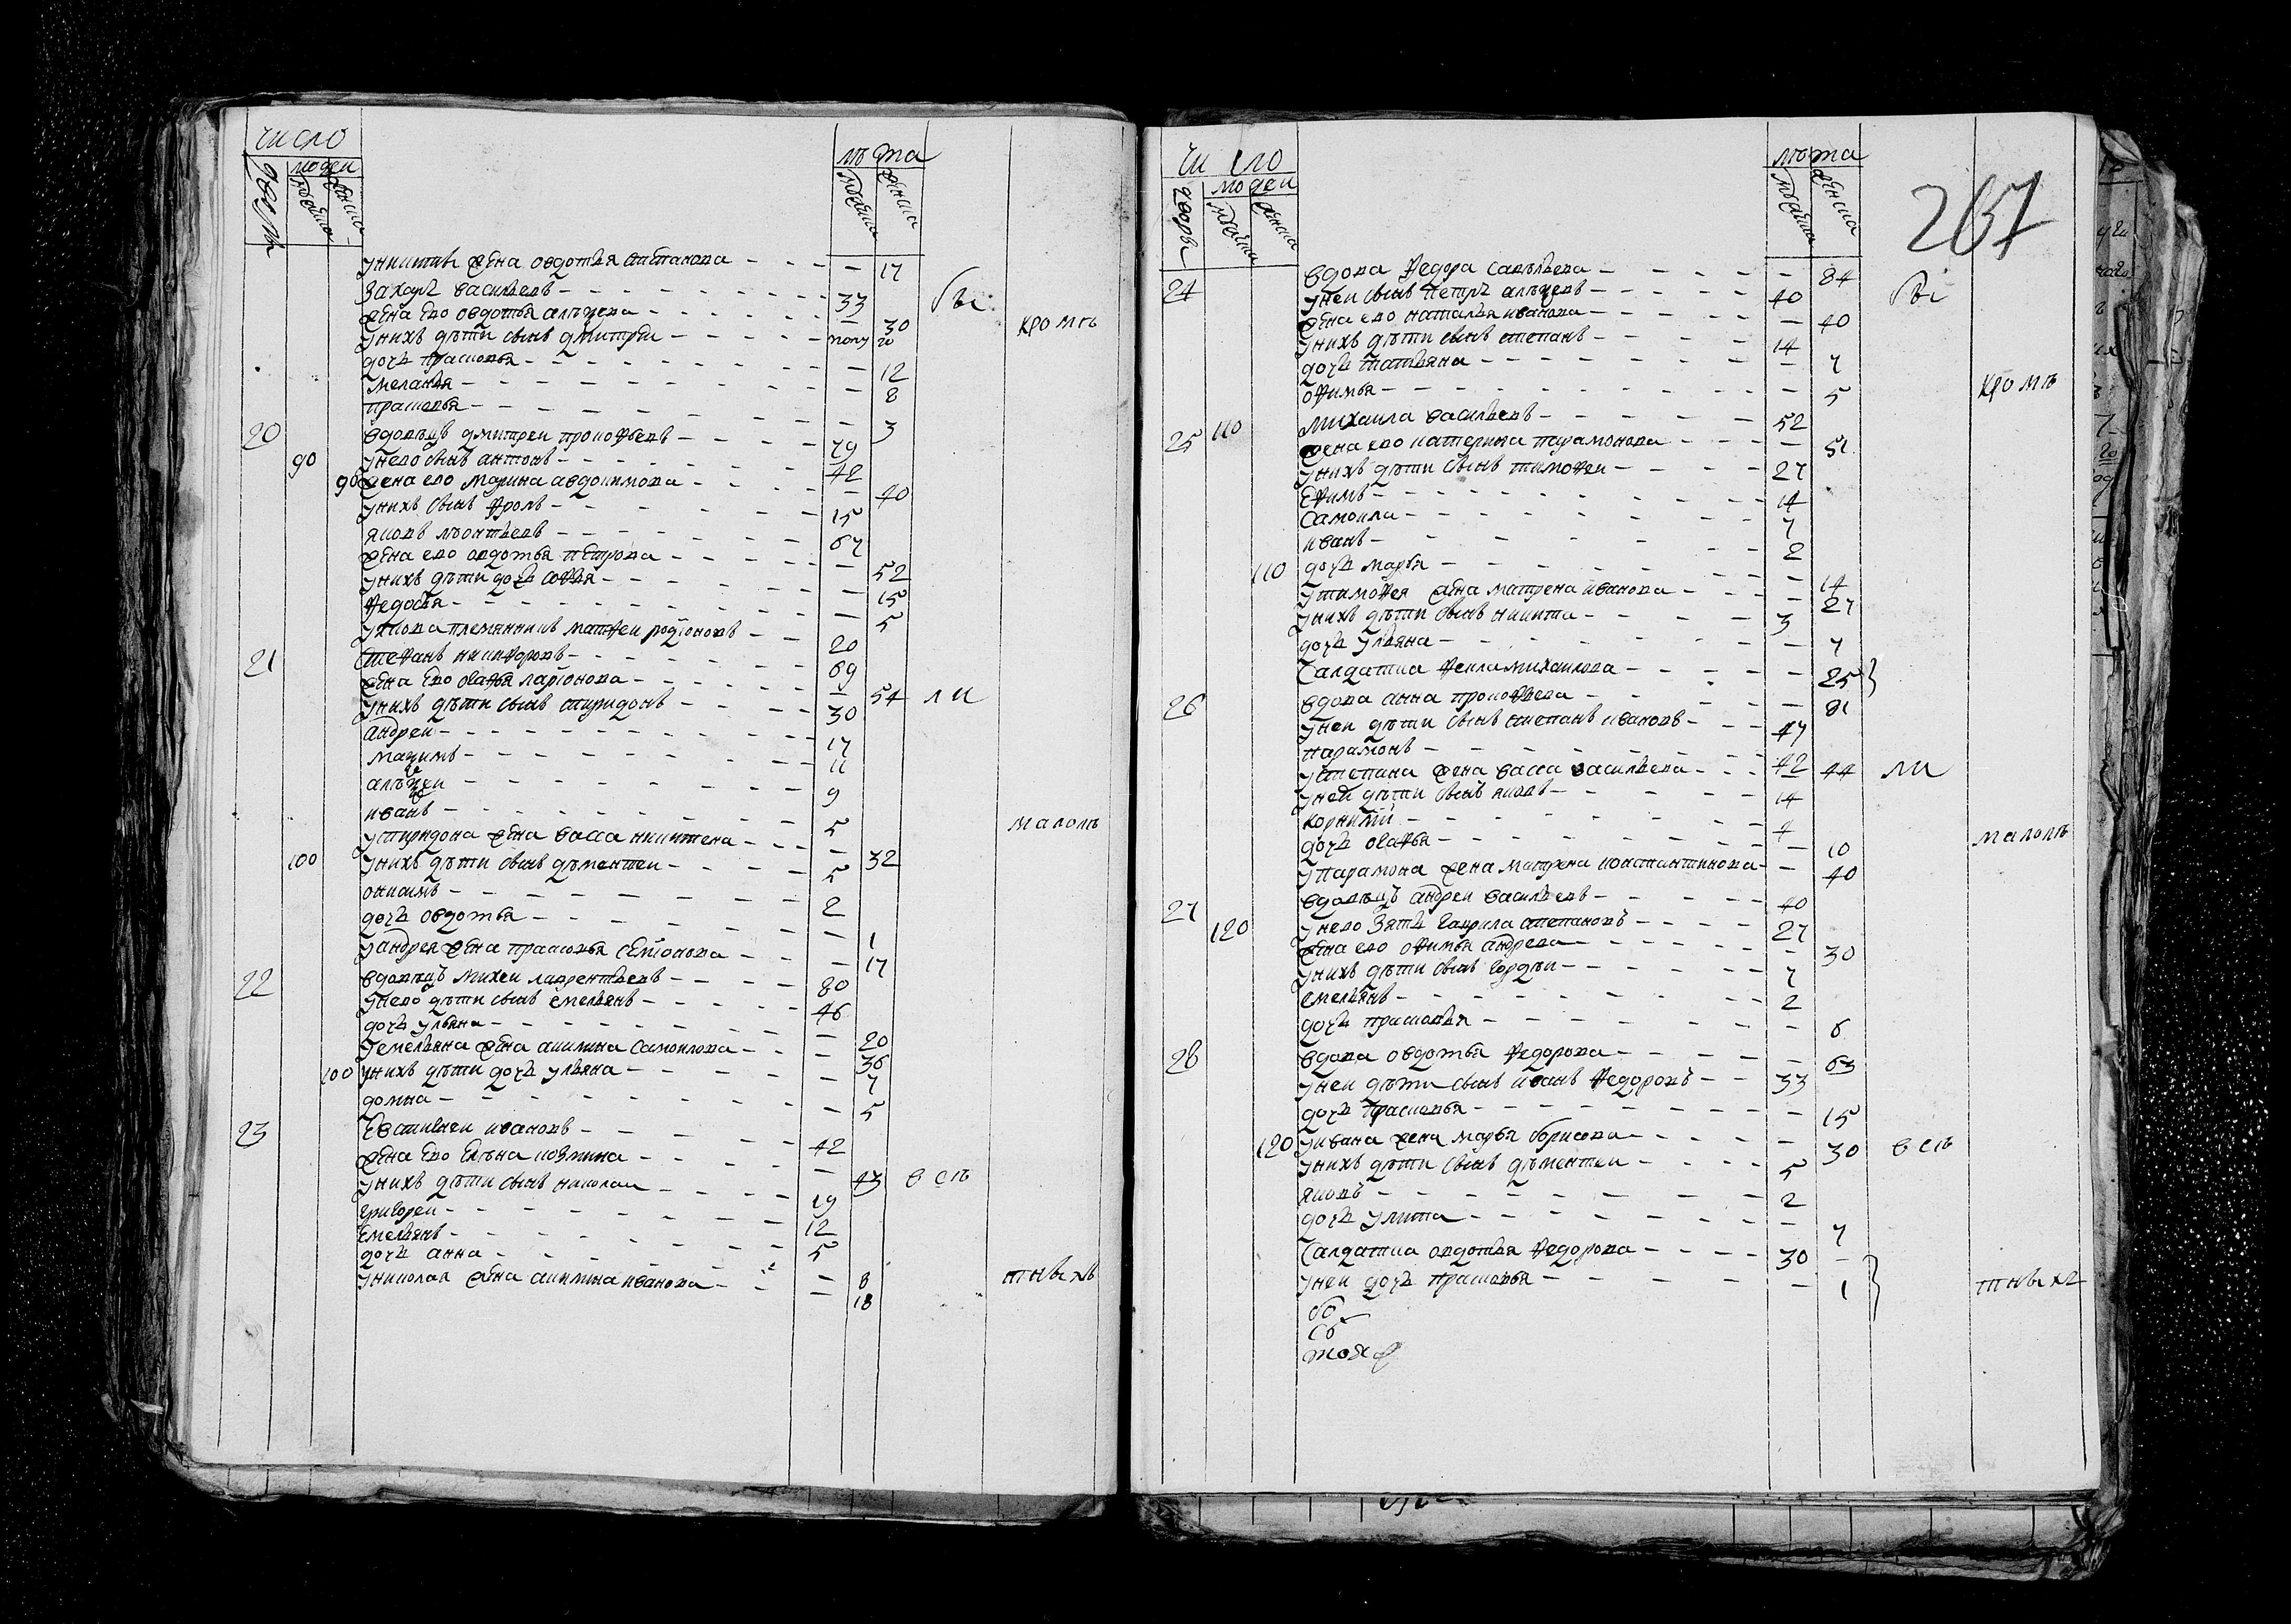 число
людей
дворы
мужеска
женска
лѣта
мужеска
женска
уникиты жена овдотья степанова - 17
Захаръ васильевъ - 33
жена ево овдотья алѣѯеева - 30
бы
унихъ дѣти сынъ дмитреи - полу го
кромѣ
дочь прасковья - 12
меланья - 8
прасковья - 3
20 вдовецъ дмитреи прокофьевъ - 79
90 унево сынъ антонъ - 42
90 жена ево марина авдокимова - 40
унихъ сынъ фролъ - 15
яковъ лѣонтьевъ - 67
жена ево овдотья петрова - 52
унихъ дѣти дочь софья - 15
федосья - 5
уякова племянникъ матфеи родионовъ - 20
21 стефанъ никифоровъ - 69
жена ево агафья ларионова - 54 ли
унихъ дѣти сынъ спиридонъ - 30
андреи - 17
маѯимъ - 11
алѣѯеи - 9
иванъ - 5
успиридона жена васса никитена - 32
малолѣ
100 унихъ дѣти сынъ дѣментеи - 5
онисимъ - 2
дочь овдотья - 1
уандрея жена прасковья семионова - 17
22 вдовецъ михеи лаврентьевъ - 80
унево дѣти сынъ емельянъ - 46
дочь ульяна - 20
уемельяна жена акилина самоилова - 36
100 унихъ дѣти дочь ульяна - 7
домна - 5
23 Евстигнеи ивановъ - 42
жена ево елѣна козмина - 43 всѣ
унихъ дѣти сынъ николаи - 19
григореи - 12
емельянъ - 5
дочь анна - 8
униколая жена акилина иванова - 18
тныхъ
число
людей
дворы
мужеска
женска
лѣта
мужеска
женска
267
24 вдова федора савельева - 84
унеи сынъ петръ алѣѯеевъ - 40 бы
жена ево наталья иванова - 40
унихъ дѣти сынъ степанъ - 14
дочь татьяна - 7
офимья - 5
кромѣ
25 110 михаила васильевъ - 52
жена ево катерина парамонова - 51
унихъ дѣти сынъ тимофеи - 27
Ефимъ - 14
самоила - 7
иванъ - 2
110 дочь марья - 14
утимофея жена матрена иванова - 27
унихъ дѣти сынъ никита - 3
дочь ульяна - 7
салдатка фекла михаилова - 25
26 вдова анна прокофьева - 81
унеи дѣти сынъ степанъ ивановъ - 47
парамонъ - 42
устепана жена васса васильева - 44 ли
унеи дѣти сынъ яковъ - 14
корнили - 4
дочь агафья - 10
малолѣ
упарамона жена матрена костантинова - 40
27 вдовецъ андреи васильевъ - 40
120 унево зять гаврила степановъ - 27
жена ево офимья андреева - 30
унихъ дѣти сынъ гордѣи - 7
емельянъ - 2
дочь прасковья - 6
28 вдова овдотья федорова - 63
унеи дѣти сынъ иванъ федоровъ - 33
дочь прасковья - 15
120 уивана жена марья борисова - 30 всѣ
унихъ дѣти сынъ дѣментеи - 5
яковъ - 2
дочь улита - 7
салдатка овдотья федорова - 30
унеи дочь прасковья - 1
тныхъ